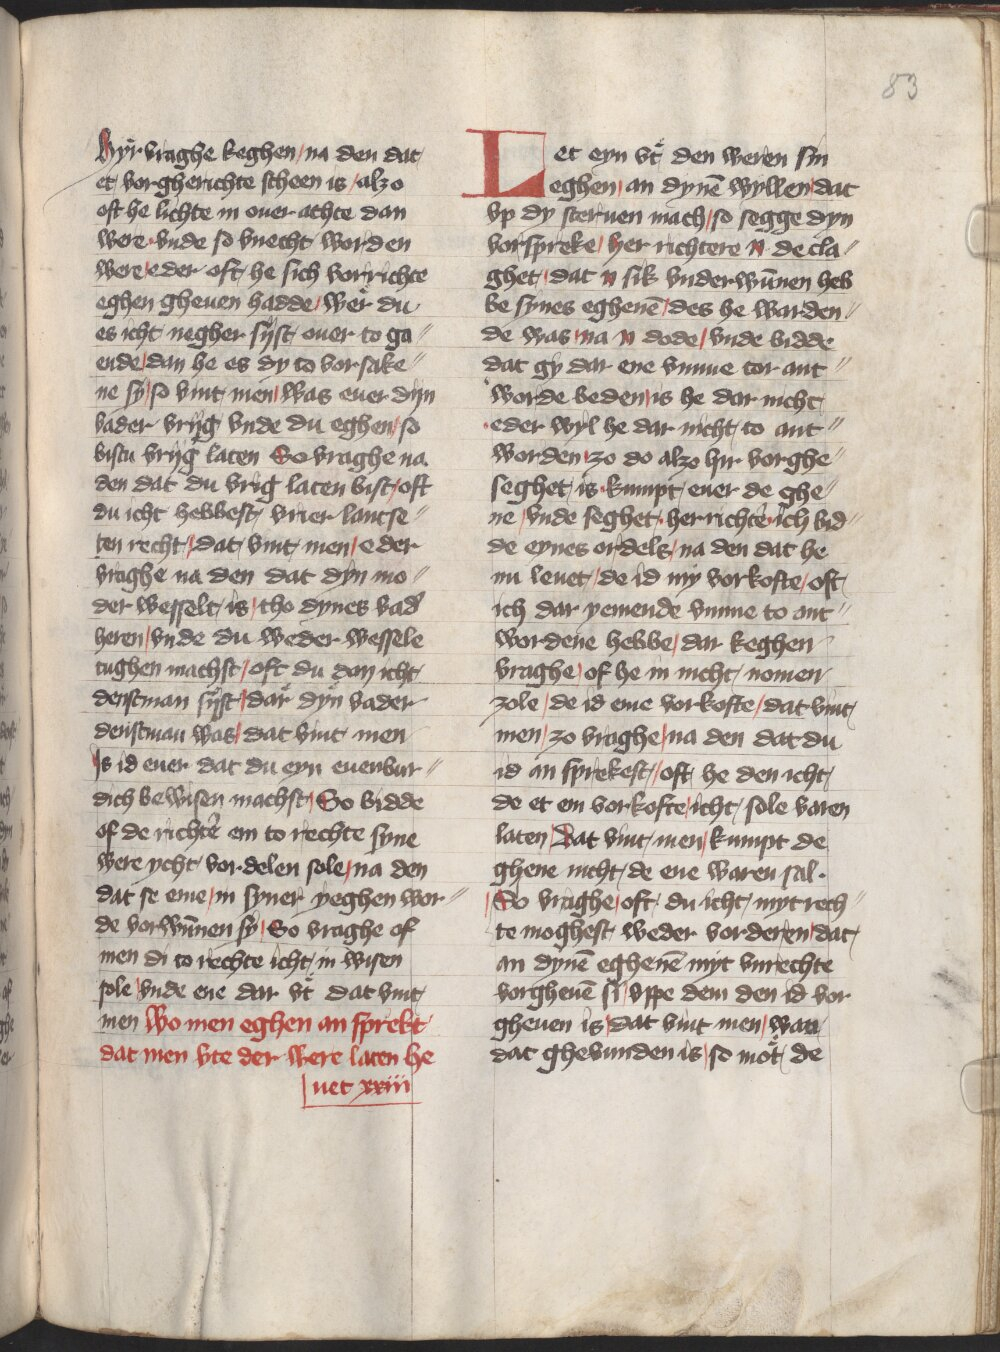 83
Hyr vraghe keghen / na den dat
et vorgherichte scheen is / alzo
oft he lichte in ouer achte dan
were · vnde so vnecht worden
were / eder oft he sich vorrichte
eghen gheuen hadde / wer du
es icht negher syst ouer to ga//
ende / dan he es dy to vorsake//
ne sy / so vint men / was euer dyn
vader vryg vnde du eghen / so
bistu vryg laten So vraghe na
den dat du vrig laten bist / oft
du icht hebbest vrier lantse//
ten recht / dat vint men / eder
vraghe na den dat dyn mo//
der wesselt is / tho dynes vad'
heren / vnde du weder wessele
tughen machst / oft du dan icht
denstman syst / dar dyn vader
denstman was / dat vint men
Is id euer dat du eyn euenbur//
dich bewisen machst / So bidde
of de richter em to rechte syne
were ycht vordelen sole / na den
dat se eme / in syner yeghen wor//
de vorwūnen sy / So vraghe of
men di to rechte icht in wisen
sole / vnde ene dar vt dat vint
men Wo men eghen an sprekt
dat men vte der were laten he
uet xxiii
Let eyn vt den weren sin
eghen / an dynē wyllen / dat
vp dy steruen mach / so segge dyn
vorspreke / her richtere N de cla//
ghet / dat N sik vnderwūnen heb
be synes eghenē / des he warden//
de was / na N dode / vnde bidde
dat gy dar ene vmme tor ant//
worde beden / is he dar nicht
eder wyl he dar nicht to ant//
worden / zo do alzo hir vorghe//
seghet is · kumpt euer de ghe//
ne / vnde seghet · her richtē · ich bid//
de eynes ordels / na den dat he
nu leuet / de id my vorkofte / oft
ich dar yemende vmme to ant//
wordene hebbe / dar keghen
vraghe / of he in nicht nomen
zole / de id eme vorkofte / dat vint
men / zo vraghe / na den dat du
id an sprekest / oft he den icht
de et em vorkofte / icht sole varen
laten / Dat vint men / kumpt de
ghene nicht / de ene waren sal ·
So vraghe / oft du icht myt rech//
te moghest weder vorderen / dat
an dynē eghenē myt vnrechte
vorgheuē si / vppe dem den id vor
gheuen is / dat vint men / wan
dat ghevunden is / so mot de